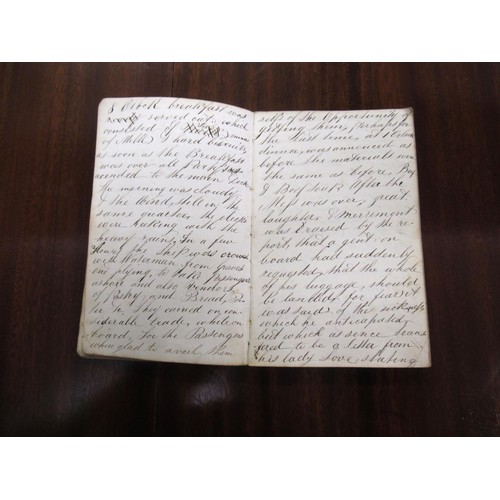 8 Oclock breakfast was
served out, which
consisted of
of Milk & hard biscuits
as soon as the Breakfast
was over all Partys
asended to the main Deck
the morning was cloudy
& the Wind still in the
same quarter the decks
were with the
heavy rain, In a few
hours the Ship was
with Waterman from
one plying, to take Passengers
ashore and also vendors
of Pastry and Bread,
&c &c, They carried on con-
siderable trade, while on
board, for the Passengers
where glad to avail them
selfs of the Opportunity of
getting them, perhaps for
the last time, at 1 Oclock
dinner was announced as
before the materials were
the same as before, Beef
& Beef Soup After the
Mess was over, great
laughter & merriment
was by the re-
ports that a gent on
board had suddenly
requested, that the whole
of his luggage, should
be landed for fear it
was said of the
which he anticipated,
but which as since trans
pired to be a Letter from
his lady love, stating